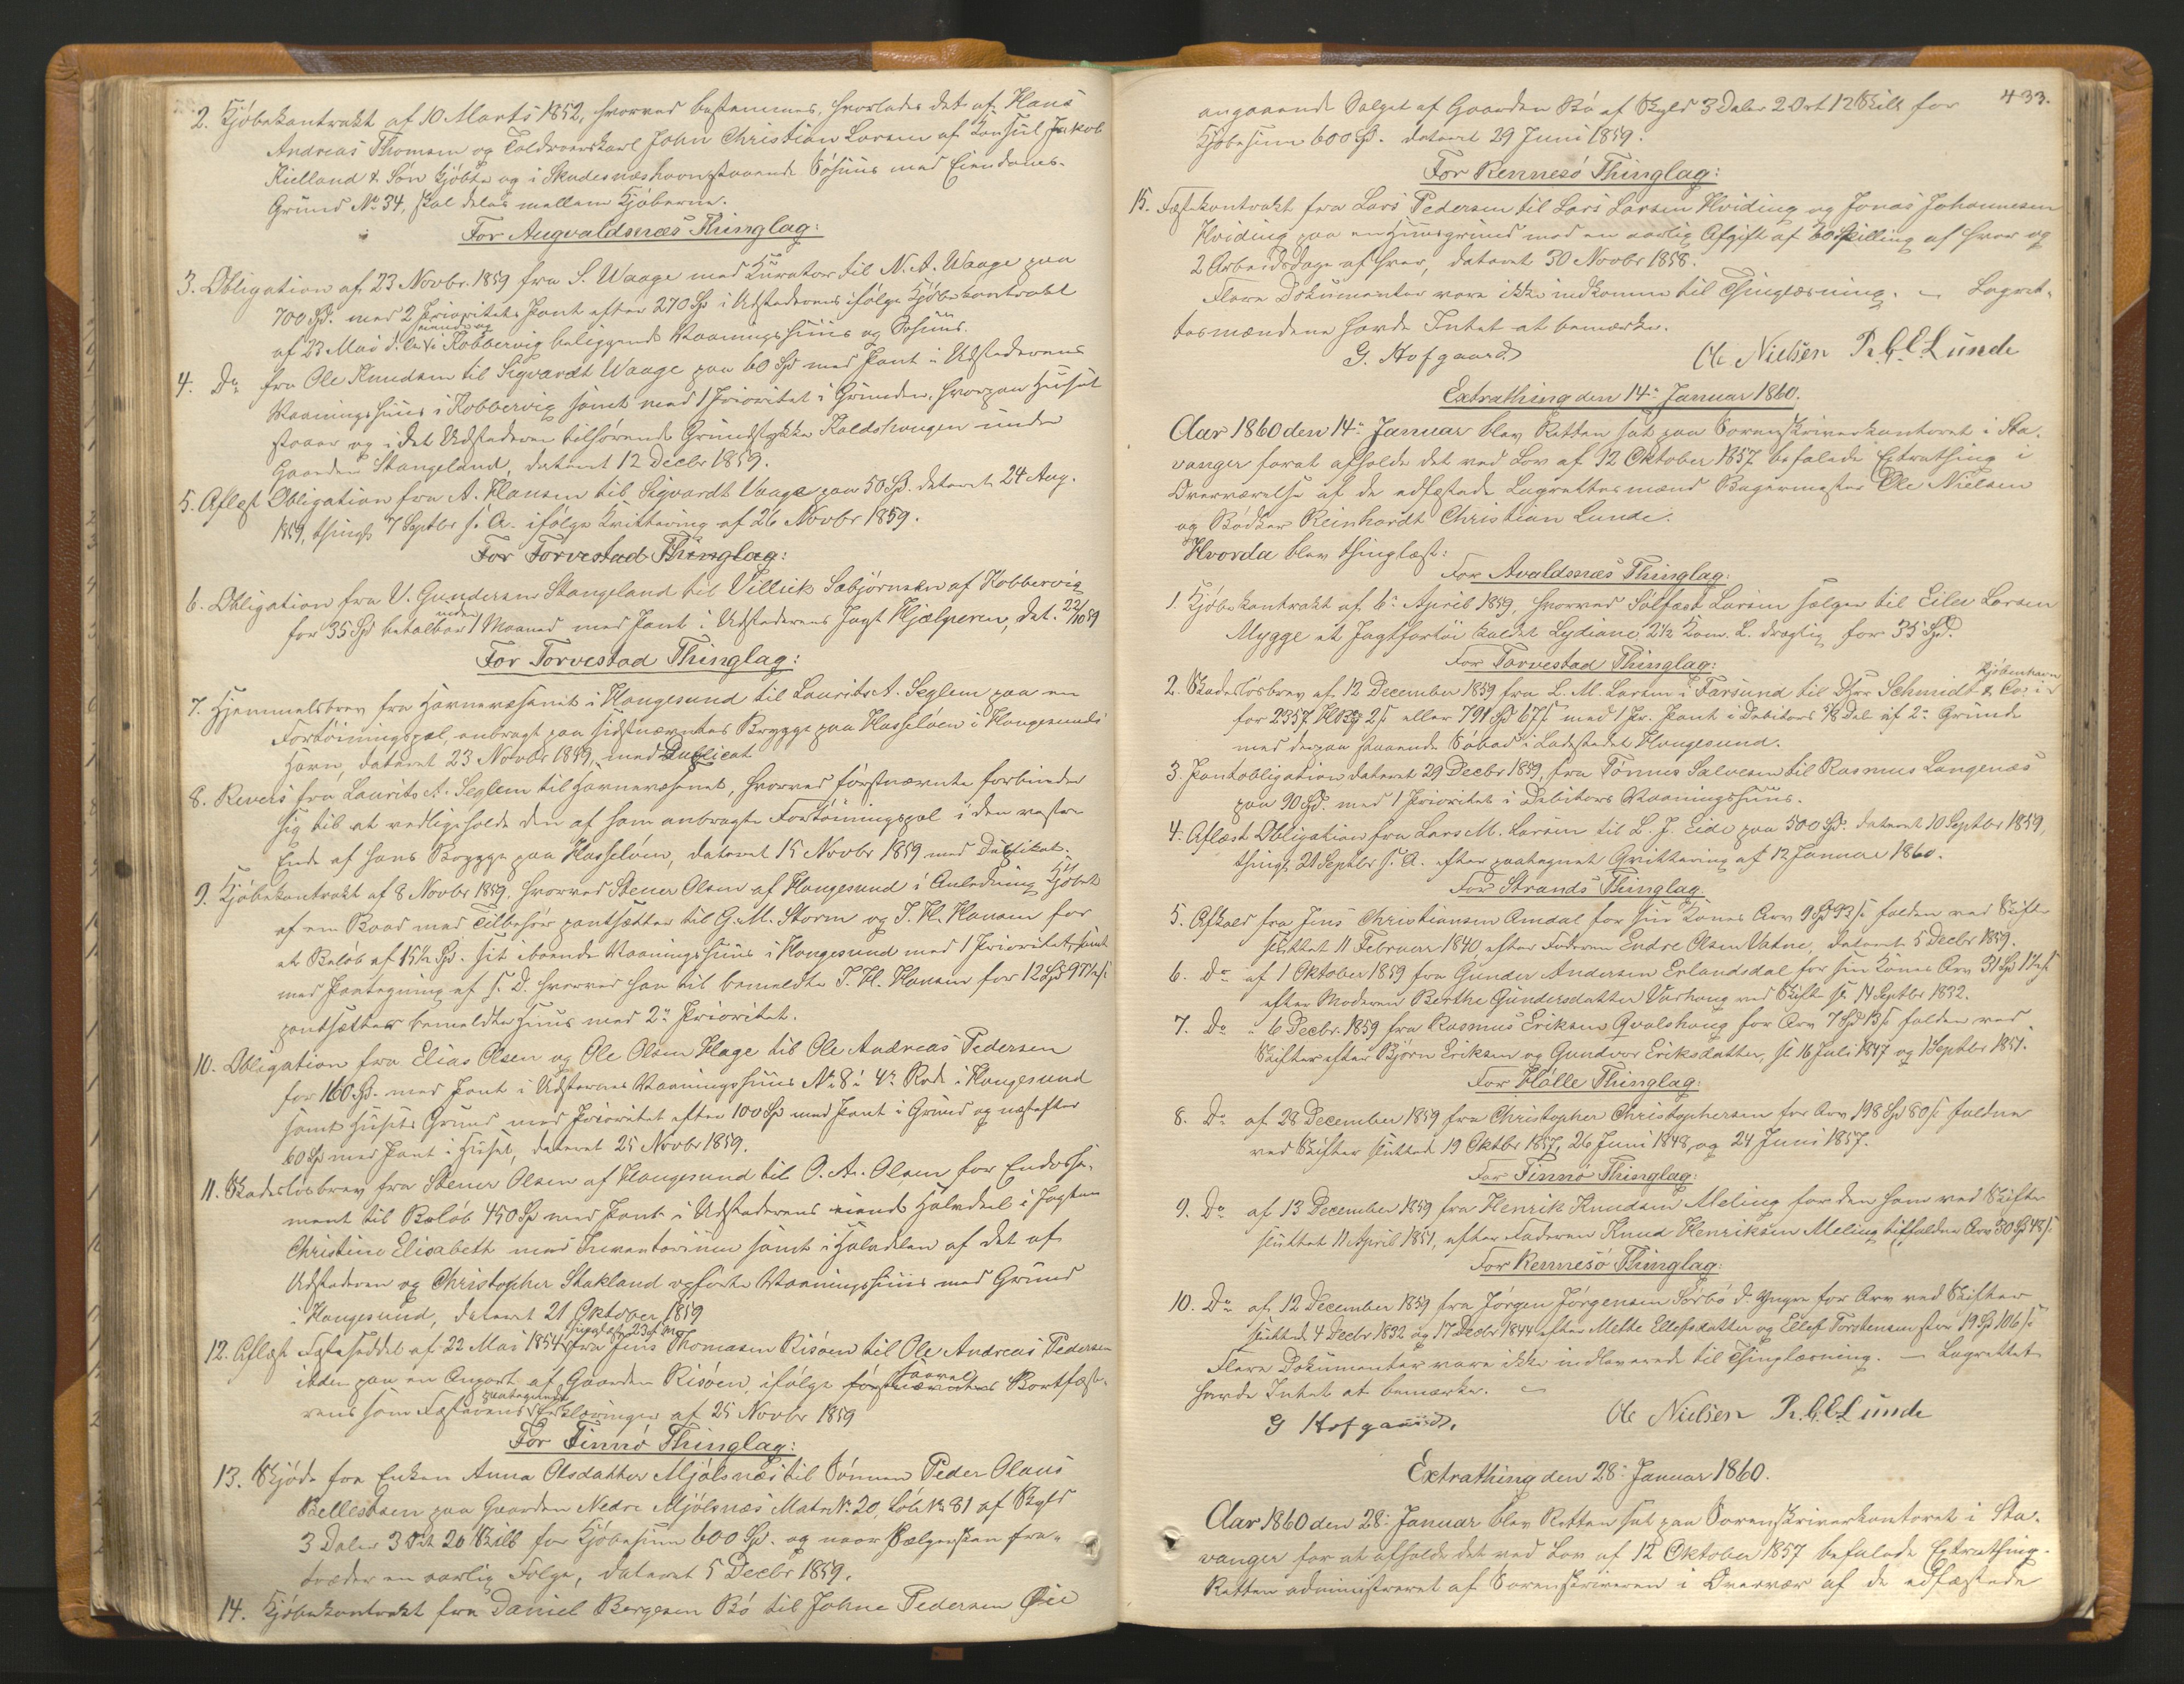 2. Kjöbekontrakt af 10 Marts 1852, hvorved bestemmes, hvorledes det af Hans
Andreas Thomsen og Toldroerskarl John Christian Larsen af Konsul Jakob
Kielland & Søn kjöbte og i Skudesnæshavn staaende Söhuus med Eiendoms-
Grund No 34, skal deles mellem Kjöberne.
For Augvaldsnæs Thinglag:
3. Obligation af 23 Novbr. 1859 fra S. Waage med Kurator til N. A. Waage paa
700 Spd. med 2 Prioritets Pant efter 270 Sp i Udstederens ifölge Kjöbekontrakt
af 23 Mai d. A. i Kobbervig beliggende Vaaningshuus og Söhuus.
4. Do fra Ole Knudsen til Sigvardt Waage paa 60 Spd med Pant i Udstederens
Vaaningshuus i Kobbervig samt med 1 Prioritet i Grunden, hvorpaa Huset
staaer og i det Udstederen tilhörende Grundstykke Kaldshaugen under
Gaarden Stangeland, dateret 12 Decbr 1859.
5. Aflæst Obligation fra A. Hansen til Sigvardt Vaage paa 50 Spd. dateret 24 Aug.
1859, thingl. 7 Septbr s. A. ifölge Kvittering af 26 Novbr 1859.
For Torvestad Thinglag:
6. Obligation fra V. Gundersen Stangeland til Villeik Sebjörnsen af Kobbervig
for 35 Spd betalbar inden 1 Maaned med Pant i Udstederens Jagt Hjælperen, dat. 22/10 59
For Torvestad Thinglag:
7. Hjemmelsbrev fra Havnevæsenet i Haugesund til Laurits A. Seglem paa en
Fortöiningspæl, anbragt paa sidstnævntes Brygge paa Hasselöen i Haugesunds
Havn, dateret 23 Novbr 1859, med Duplicat
8. Revers fra Laurits A. Seglem til Havnevæsenet, hvorved förstnævnte forbinder
sig til at vedligeholde den af ham anbragte Fortöiningspæl i den vestre
Ende af hans Brygge paa Hasselöen, dateret 15 Novbr 1859 med Duplikat.
9. Kjöbekontrakt af 8 Novbr 1859, hvorved Stener Olsen af Haugesund i Anledning Kjöbet
af en Baad med Tilbehör pantsætter til G. M. Storm og T. H. Hansen for
et Belöb af 15½ Spd. sit iboende Vaaningshuus i Haugesund med 1 Prioritet, samt
med Paategning af s. D. hvorved han til bemeldte T. H. Hansen for 12 Spd
pantsætter bemeldte Huus med 2n Prioritet.
10. Obligation fra Elias Olsen og Ole Olsen Hage til Ole Andreas Pedersen
for 160 Spd. med Pant i Udstedernes Vaaningshuus No 8 i 4de Rode i Haugesund
samt Husets Grund med Prioritet efter 100 Sp med Pant i Grund og næstefter
60 Sp med Pant i Huset, dateret 25 Novbr 1859.
11. Skadeslösbrev fra Stener Olsen af Haugesund til O. A. Olsen for Endosse-
ment til Belöb 450 Sp med Pant i Udstederens eiende Halvdeel i Jagten
Christine Elisabeth med Inventarium samt i Halvdelen af det af
Udstederen og Christopher Stakland opförte Vaaningshuus med Grund
i Haugesund, dateret 21 Oktober 1859
12. Aflæst Fæsteseddel af 22 Mai 1854, thinglæst 23 s. M. fra Jens Thomasen Risöen til Ole Andreas Pedersen
ibden paa en Anpart af Gaarden Risöen, ifölge saavel Bortfæst-
rens som Fæsterens paategnede Erklæringer af 25 Novbr 1859
For Finnö Thinglag:
13. Skjöde fra Enken Anna Olsdatter Mjölsnæs til Sönnen Peder Olaus
Bellesen paa Gaarden Nedre Mjölsnæs Matr. No 20, Löb No 81 af Skyld
3 Daler 3 Ort 20 Skill for Kjöbesum 600 Sp. og naar Sælgersken fra-
træder en aarlig Folge, dateret 5 Decbr 1859.
14. Kjöbekontrakt fra Daniel Børgesen Bö til Johne Pedersen Øie
433.
angaaende Salget af Gaarden Bö af Skyld 3 Daler 2 Ort 12 Skill for
Kjöbesum 600 Spd. dateret 29 Juni 1859.
For Rennesö Thinglag:
15. Fæstekontrakt fra Lars Pedersen til Lars Larsen Hviding og Jonas Johannesen
Hviding paa en Huusgrund med en aarlig Afgift af 60 Skilling af hver og
2 Arbeidsdage af hver, dateret 30 Novbr 1858.
Flere Dokumenter vare ikke indkomne til Thinglæsning. – Lagret-
tesmændene havde Intet at bemærke.
G. Hofgaard Ole Nielsen R. C. E. Lunde
Extrathing den 14de Januar 1860.
Aar 1860 den 14de Januar blev Retten sat paa Sorenskriverkontoret i Sta-
vanger forat afholde det ved Lov af 12 Oktober 1857 befalede Extrathing i
Overværelse af de edfæstede Lagrettesmænd Bagermester Ole Nielsen
og Bödker Reinhardt Christian Lunde.
Hvorda blev thinglæst:
For Avaldsnæs Thinglag:
1. Kjöbekontrakt af 6te April 1859, hvorved Sölfest Larsen sælger til Eiler Larsen
Mygge et Jagtfartöi kaldet Lydiane 2½ Kom. L. drægtig for 35 Spd.
For Torvestad Thinglag:
2. Skadeslösbrev af 12 December 1859 fra L. M. Larsen i Farsund til DHrr Schmidt & Co: i Kjöbenhavn
for 2357 2 s eller 791 Spd 67 s med 1 Pr. Pant i Debitors 5/8 Del af 2de Grunde
med derpaa staaende Söbod i Ladestedet Haugesund.
3. Pantobligation dateret 29 Decbr 1859, fra Tönnes Salvesen til Rasmus Langenæs
paa 90 Spd. med 1 Prioritet i Debitors Vaaningshuus.
4. Aflæst Obligation fra Lars M. Larsen til L. J. Eide paa 500 Spd. dateret 10 Septbr 1859,
thingl. 21 Septbr s. A. efter paategnet Qvittering af 12 Januar 1860.
For Strands Thinglag.
5. Afkald fra Jens Christiansen Amdal for sin Kones Arv 9 Spd 93 s falden ved Skifte
sluttet 11 Februar 1840, efter Faderen Endre Olsen Vatne, dateret 5 Decbr 1859.
6. do af 1 Oktober 1859 fra Gunder Andersen Erlandsdal for sin Kones Arv 31 Sp
efter Moderen Berthe Gundersdatter Varhaug ved Skifte sl. 14 Septbr 1832.
7. Do " 6 Decbr. 1859 fra Rasmus Eriksen Qvalshaug for Arv 7 Spd 13 s falden ved
Skifter efter Björn Eriksen og Gundvor Eriksdatter, sl. 16 Juli 1847 og 1 Septbr 1851.
For Hölle Thinglag:
8. Do af 28 December 1859 fra Christopher Christophersen for Arv 198 Spd 80 s falden
ved Skifter sluttede 19 Oktbr 1857, 26 Juni 1848, og 24 Juni 1857.
For Finnö Thinglag:
9. Do af 13 December 1859 fra Henrik Knudsen Meling for den ham ved Skifte
sluttet 11 April 1851, efter Faderen Knud Henriksen Meling tilfaldne Arv 30 Spd 48 s
For Rennesö Thinglag:
10. Do af 12 December 1859 fra Jörgen Jörgensen Sörbö d. Yngre for Arv ved Skifter
sluttede 4 Decbr 1832 og 17 Decbr 1844 efter Mette Ellefsdatter og Ellef Torstensen stor 19 Sp 106 s
Flere Dokumenter vare ikke indleverede til Thinglæsning. – Lagrettet
havde Intet at bemærke. –
G Hofgaard. Ole Nielsen R. C. E. Lunde
Extrathing den 28de Januar 1860.
Aar 1860 den 28de Januar blev Retten sat paa Sorenskriverkontoret i Sta-
vanger for at afholde det ved Lov af 12 Oktober 1857 befalede Extrathing.
Retten administreret af Sorenskriveren i Overvær af de edfæstede